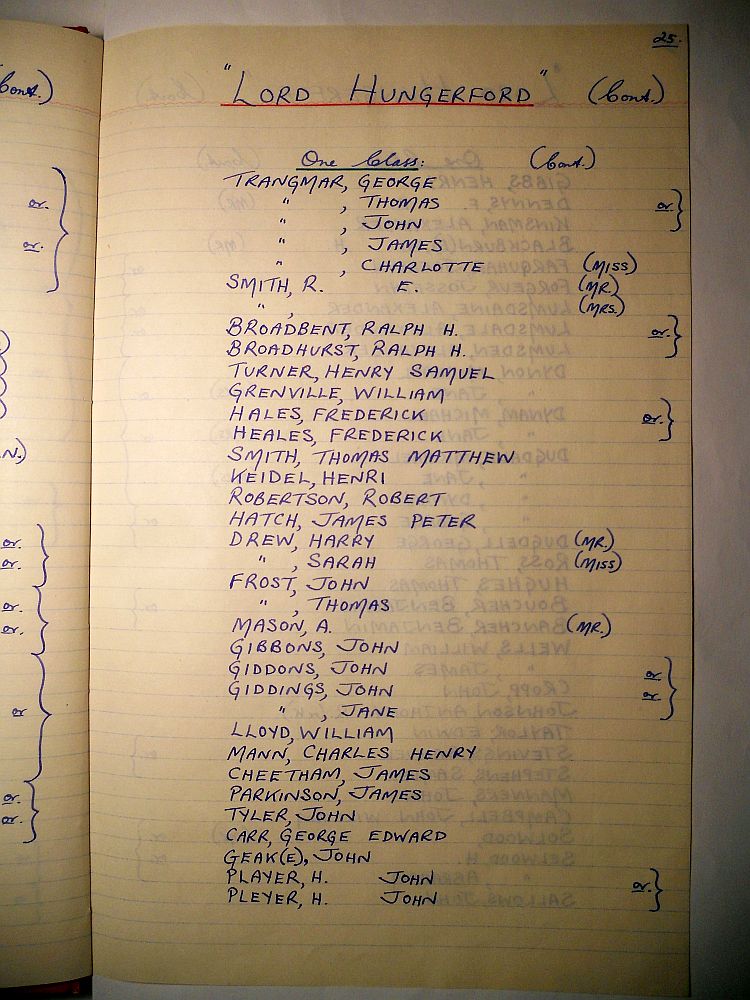 25.
Cont.)
"LORD HUNGERFORD" (Cont.)
One Class: (Cont.)
TRANGMAR, GEORGE
" , THOMAS or.
" , JOHN
" , JAMES
" , CHARLOTTE (MISS)
SMITH, R. E. (MR.)
" , (MRS.)
BROADBENT, RALPH H. or.
BROADHURST, RALPH H.
TURNER, HENRY SAMUEL
GRENVILLE, WILLIAM
HALES, FREDERICK or.
HEALES, FREDERICK
SMITH, THOMAS MATTHEW
KEIDEL, HENRI
ROBERTSON, ROBERT
HATCH, JAMES PETER
DREW, HARRY (MR.)
" , SARAH (MISS)
FROST, JOHN
" , THOMAS
MASON, A. (MR.)
GIBBONS, JOHN
GIDDONS, JOHN or.
GIDDINGS, JOHN or.
" , JANE
LLOYD, WILLIAM
MANN, CHARLES HENRY
CHEETHAM, JAMES
PARKINSON, JAMES
TYLER, JOHN
CARR, GEORGE EDWARD
GEAK(E), JOHN
PLAYER, H. JOHN or.
PLEYER, H. JOHN
or.
or.
N.)
or.
or.
or.
or.
or
or.
or.